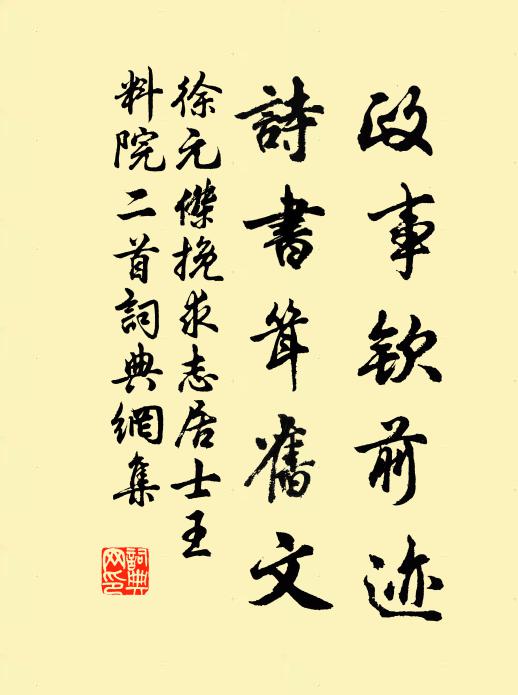 政事欽前迹
詩書耸舊文
徐元傑挽求志居士王
料院二首詞典網集
詞典网印